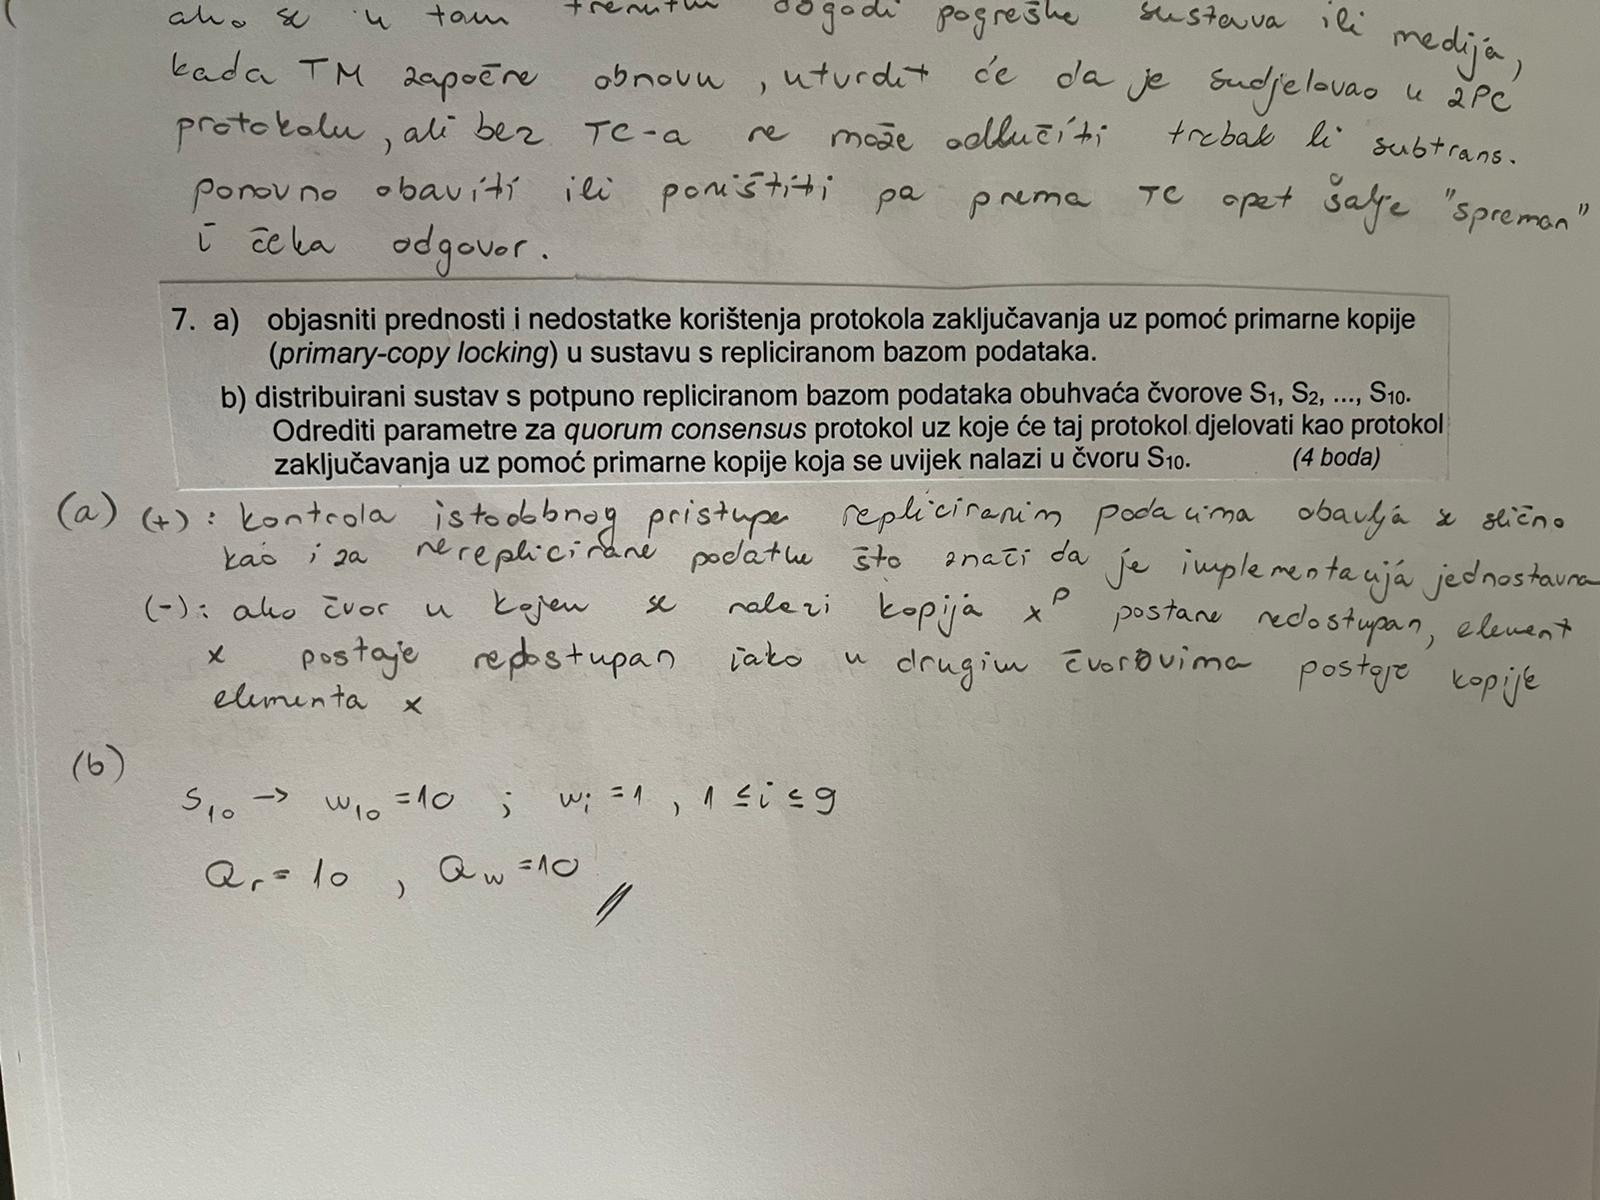 ako se u tom trenutku dogodi pogreška sustava ili medija,
kada TM započne obnovu, utvrdit će da je sudjelovao u 2PC
protokolu, ali bez TC-a ne može odlučiti trebak li subtrans.
ponovno obaviti ili poništiti pa prema TC opet šalje "spreman"
i čeka odgovor.
7. a) objasniti prednosti i nedostatke korištenja protokola zaključavanja uz pomoć primarne kopije
(primary-copy locking) u sustavu s repliciranom bazom podataka.
b) distribuirani sustav s potpuno repliciranom bazom podataka obuhvaća čvorove S1, S2, ..., S10.
Odrediti parametre za quorum consensus protokol uz koje će taj protokol djelovati kao protokol
zaključavanja uz pomoć primarne kopije koja se uvijek nalazi u čvoru S10. (4 boda)
(a) (+): kontrola istodobnog pristupa repliciranim podacima obavlja se slično
kao i za nereplicirane podatke što znači da je implementacija jednostavna
(-): ako čvor u kojem se nalazi kopija x^p postane nedostupan, element
x postaje nedostupan iako u drugim čvorovima postoje kopije
elementa x
(b)
S10 → w10 = 10 ; wi = 1 , 1 ≤ i ≤ 9
Qr = 10 , Qw = 10